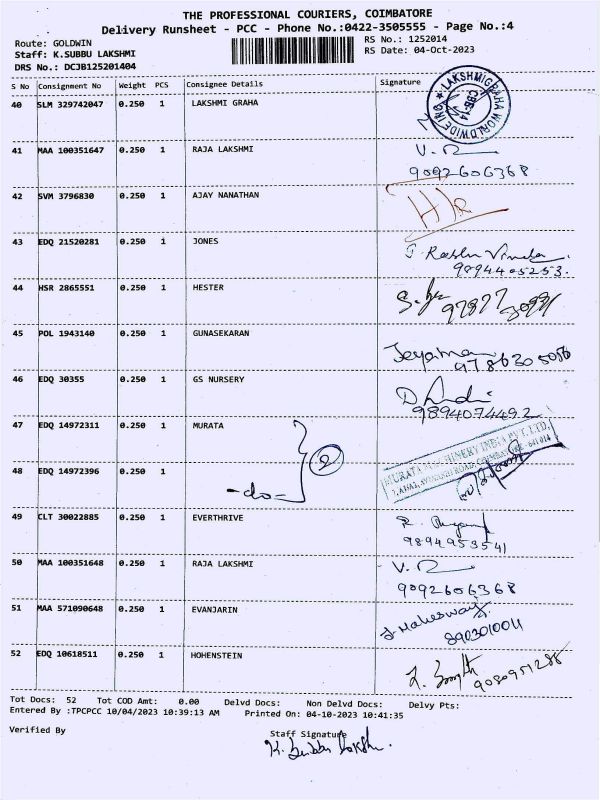 THE PROFESSIONAL COURIERS, COIMBATORE
Delivery Runsheet - PCC - Phone No.:0422-3505555 - Page No.:4
Route: GOLDWIN
Staff: K.SUBBU LAKSHMI
DRS No.: DCJB125201404
RS No.: 1252014
RS Date: 04-Oct-2023
S No Consignment No Weight PCS Consignee Details Signature
40 SLM 329742047 0.250 1 LAKSHMI GRAHA
LAKSHMIGRAHA WORLDWIDE INC CBE-14
41 MAA 100351647 0.250 1 RAJA LAKSHMI
9092606368
42 SVM 3796830 0.250 1 AJAY NANATHAN
43 EDQ 21520281 0.250 1 JONES
9894405253.
44 HSR 2865551 0.250 1 HESTER
45 POL 1943140 0.250 1 GUNASEKARAN
46 EDQ 30355 0.250 1 GS NURSERY
9894074492
47 EDQ 14972311 0.250 1 MURATA
2
MURATA MACHINERY INDIA PVT. LTD.
48 EDQ 14972396 0.250 1 -do-
49 CLT 30022885 0.250 1 EVERTHRIVE
9894953541
50 MAA 100351648 0.250 1 RAJA LAKSHMI
9092606368
51 MAA 571090648 0.250 1 EVANJARIN
8903010011
52 EDQ 10618511 0.250 1 HOHENSTEIN
9080951288
Tot Docs: 52 Tot COD Amt: 0.00 Delvd Docs: Non Delvd Docs: Delvy Pts:
Entered By :TPCPCC 10/04/2023 10:39:13 AM Printed On: 04-10-2023 10:41:35
Verified By
Staff Signature
K. Subbu Lakshmi.